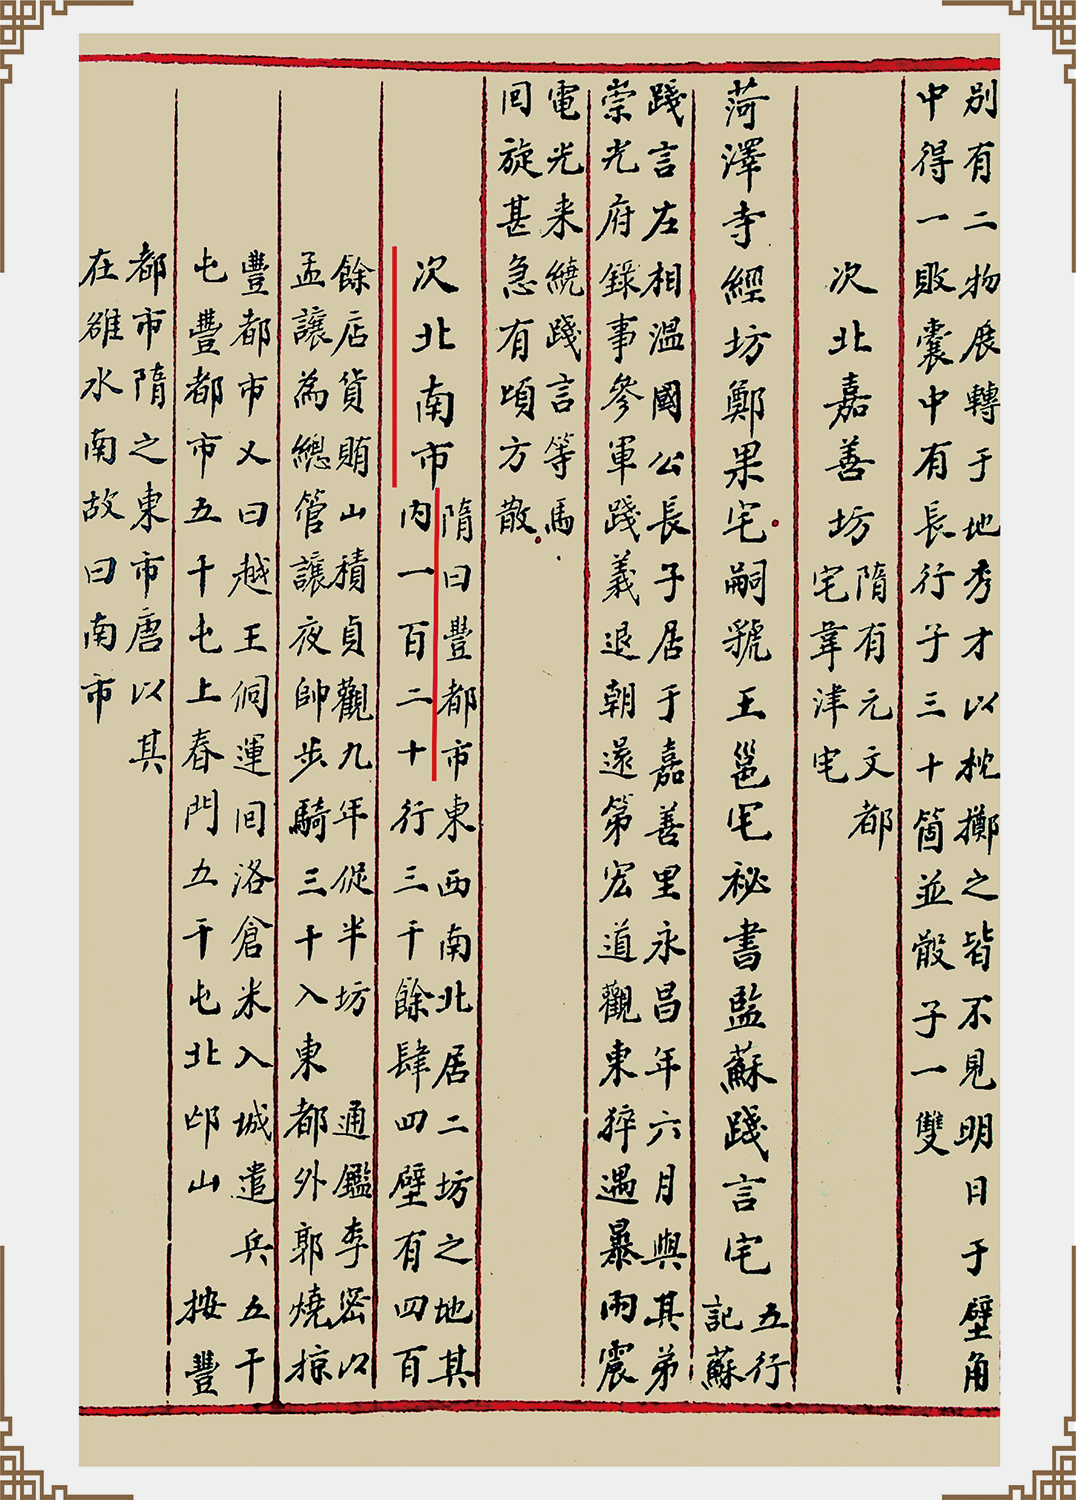 別有二物展轉于地秀才以枕擲之皆不見明日于壁角
中得一敗囊中有長行子三十箇並骰子一雙
次北嘉善坊
隋有元文都
宅韋津宅
菏澤寺經坊鄭果宅嗣虢王邕宅祕書監蘇踐言宅
五行
記蘇
踐言左相溫國公長子居于嘉善里永昌年六月與其弟
崇光府錄事參軍踐義退朝還第宏道觀東猝遇暴雨震
電光来繞踐言等馬
回旋甚急有頃方散
次北南市
隋曰豐都市東西南北居二坊之地其
內一百二十行三千餘肆四壁有四百
餘店貨賄山積貞觀九年促半坊 通鑑李密以
孟讓為總管讓夜帥步騎三千入東都外郭燒掠
豐都市又曰越王侗運回洛倉米入城遣兵五千
屯豐都市五千屯上春門五千屯北邙山 按豐
都市隋之東市唐以其
在雒水南故曰南市